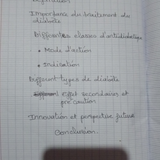 Importance du traitement de
diabète
Différentes classes d'antidiabétique
• Mode d'action
• Indication
Different types de diabète
effet secondaires et
précaution
Innovation et perspective future
Conclusion